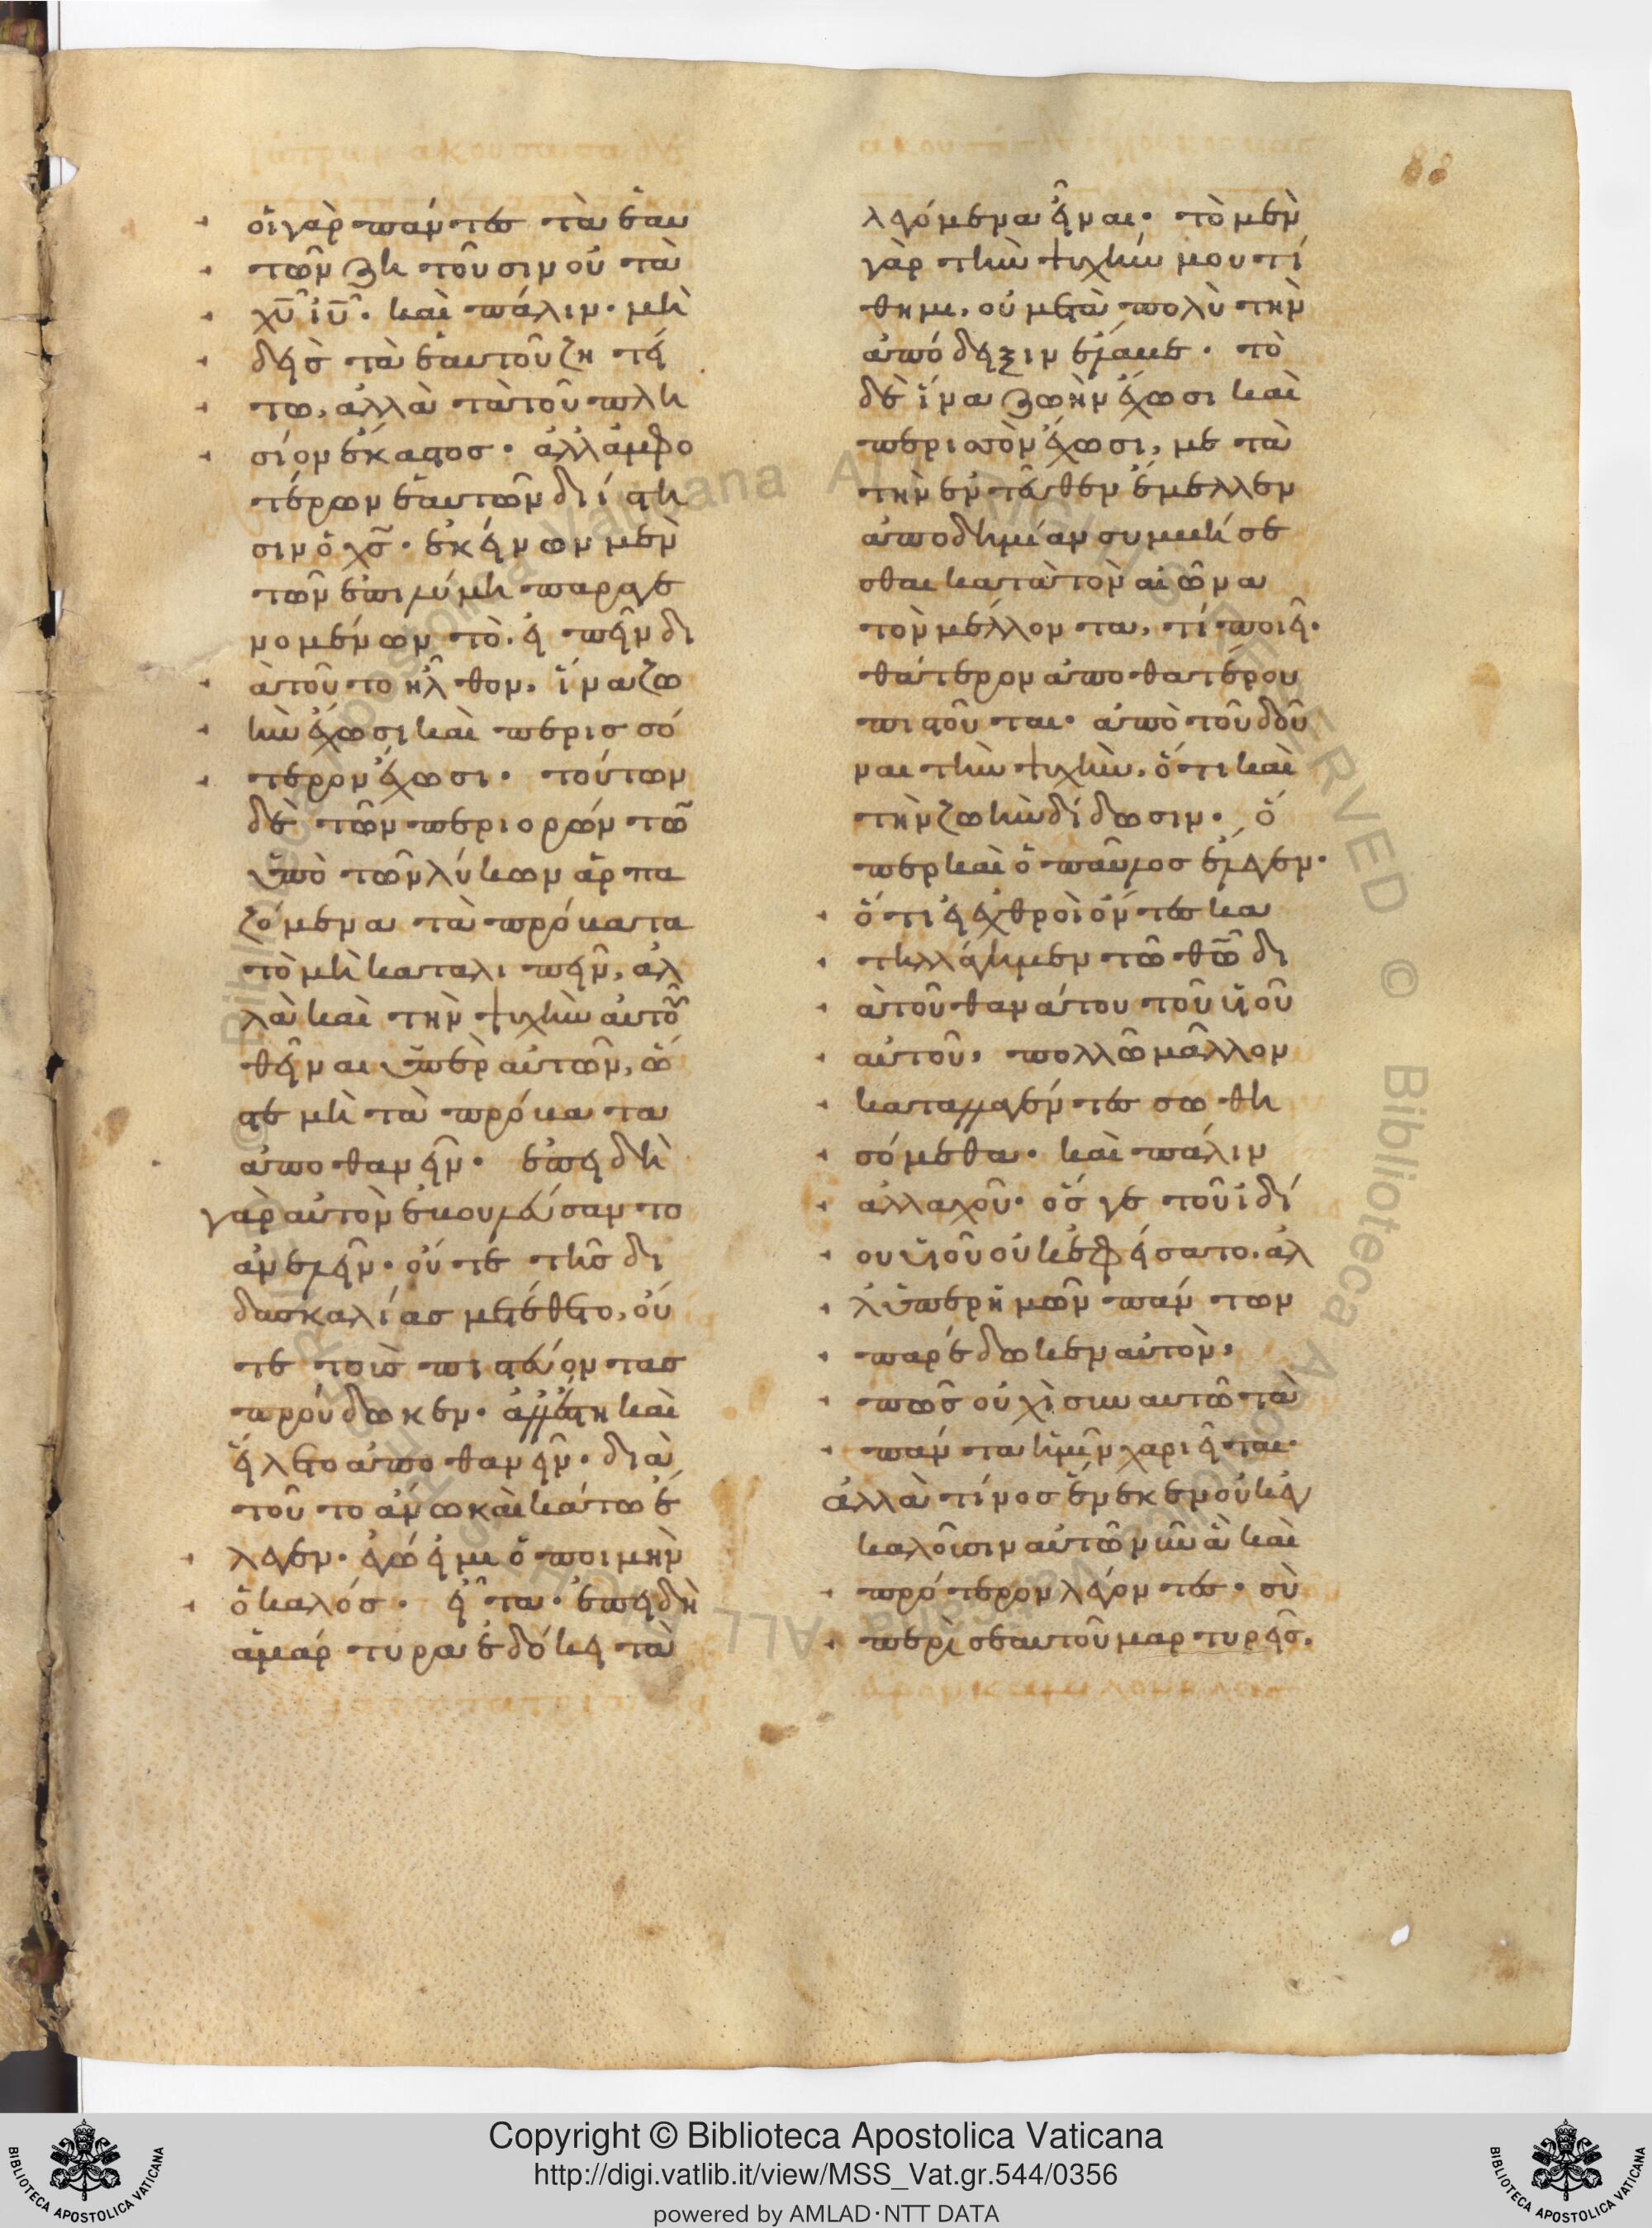 οἱ γὰρ πάντες τὰ ἑαυ
τῶν ζητοῦσιν οὐ τὰ
χῦ ἰῦ· καὶ πάλιν· μη
δεὶς τὰ ἑαυτοῦ ζητεί
τω, ἀλλὰ τὰ τοῦ πλη
σίον ἕκαστος· ἀλλ' ἀμφο
τέρων ἑαυτὸν διίστη
σιν ὁ χς· ἐκείνων μὲν
τῶν ἐπὶ λύμη παραγε
νομένων τὸ εἰπεῖν δι
ὰ τοῦτο ἦλθον, ἵνα ζω
ὴν ἔχωσι καὶ περισσό
τερον ἔχωσι· τούτων
δὲ τῶν περιορώντων
ὑπὸ τῶν λύκων ἁρπα
ζόμενα τὰ πρόβατα
τὸ μὴ καταλιπεῖν, ἀλ
λὰ καὶ τὴν ψυχὴν αὐτοῦ
θεῖναι ὑπὲρ αὐτῶν, ὥ
στε μὴ τὰ πρόβατα
ἀποθανεῖν· ἐπειδὴ
γὰρ αὐτὸν ἐβουλεύσαντο
ἀνελεῖν· οὔτε τῆς δι
δασκαλίας μετέθετο, οὔ
τε τοὺς πιστεύοντας
προύδωκεν· ἀλλ' ἔστη καὶ
εἵλετο ἀποθανεῖν· διὰ
τοῦτο ἄνω καὶ κάτω ἔ
λεγεν· ἐγώ εἰμι ὁ ποιμὴν
ὁ καλός· εἶτα· ἐπειδὴ
ἀμάρτυρα ἐδόκει τὰ
λεγόμενα εἶναι· τὸ μὲν
γὰρ τὴν ψυχήν μου τί
θημι, οὐ μετὰ πολὺ τὴν
ἀπόδειξιν ἔλαβε· τὸ
δὲ ἵνα ζωὴν ἔχωσι καὶ
περισσὸν ἔχωσι, μετὰ
τὴν ἐντεῦθεν ἔμελλεν
ἀποδημίαν συμβήσε
σθαι κατὰ τὸν αἰῶνα
τὸν μέλλοντα, τί ποιεῖ·
θάτερον ἀπὸ θατέρου
πιστοῦται· ἀπὸ τοῦ δοῦ
ναι τὴν ψυχὴν, ὅτι καὶ
τὴν ζωὴν δίδωσιν· ὅ
περ καὶ ὁ παῦλος ἔλεγεν·
ὅτι εἰ ἐχθροὶ ὄντες κα
τηλλάγημεν τῶ θῶ δι
ὰ τοῦ θανάτου τοῦ υἱοῦ
αὐτοῦ, πολλῶ μᾶλλον
καταλλαγέντες σωθη
σόμεθα· καὶ πάλιν
ἀλλαχοῦ· ὅς γε τοῦ ἰδί
ου υἱοῦ οὐκ ἐφείσατο, ἀλ
λ' ὑπὲρ ἡμῶν πάντων
παρέδωκεν αὐτὸν,
πῶς οὐχὶ σὺν αὐτῶ τὰ
πάντα ἡμῖν χαριεῖται·
ἀλλὰ τίνος ἕνεκεν οὐκ ἐγ
καλοῦσιν αὐτῶ νῦν ἃ καὶ
πρότερον λέγοντες· σὺ
περὶ σεαυτοῦ μαρτυρεῖς.
Copyright © Biblioteca Apostolica Vaticana
http://digi.vatlib.it/view/MSS_Vat.gr.544/0356
powered by AMLAD·NTT DATA